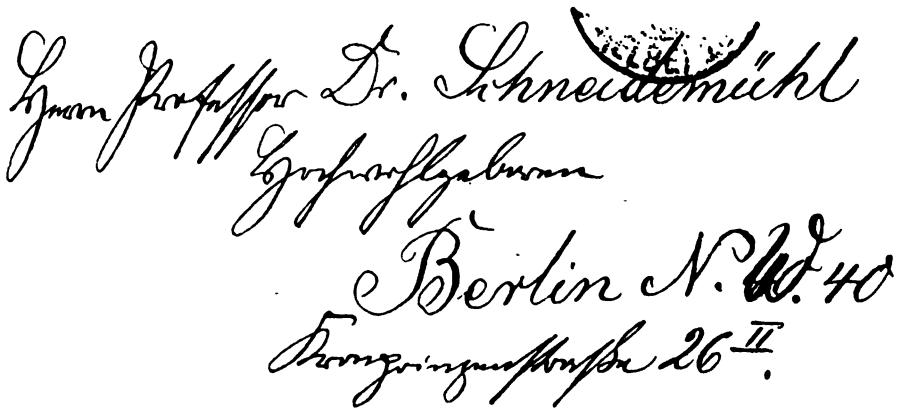 Herrn Professor Dr. Schneidemühl
Hochwohlgeboren
Berlin N. W. 40
Kronprinzenstraße 26 II.